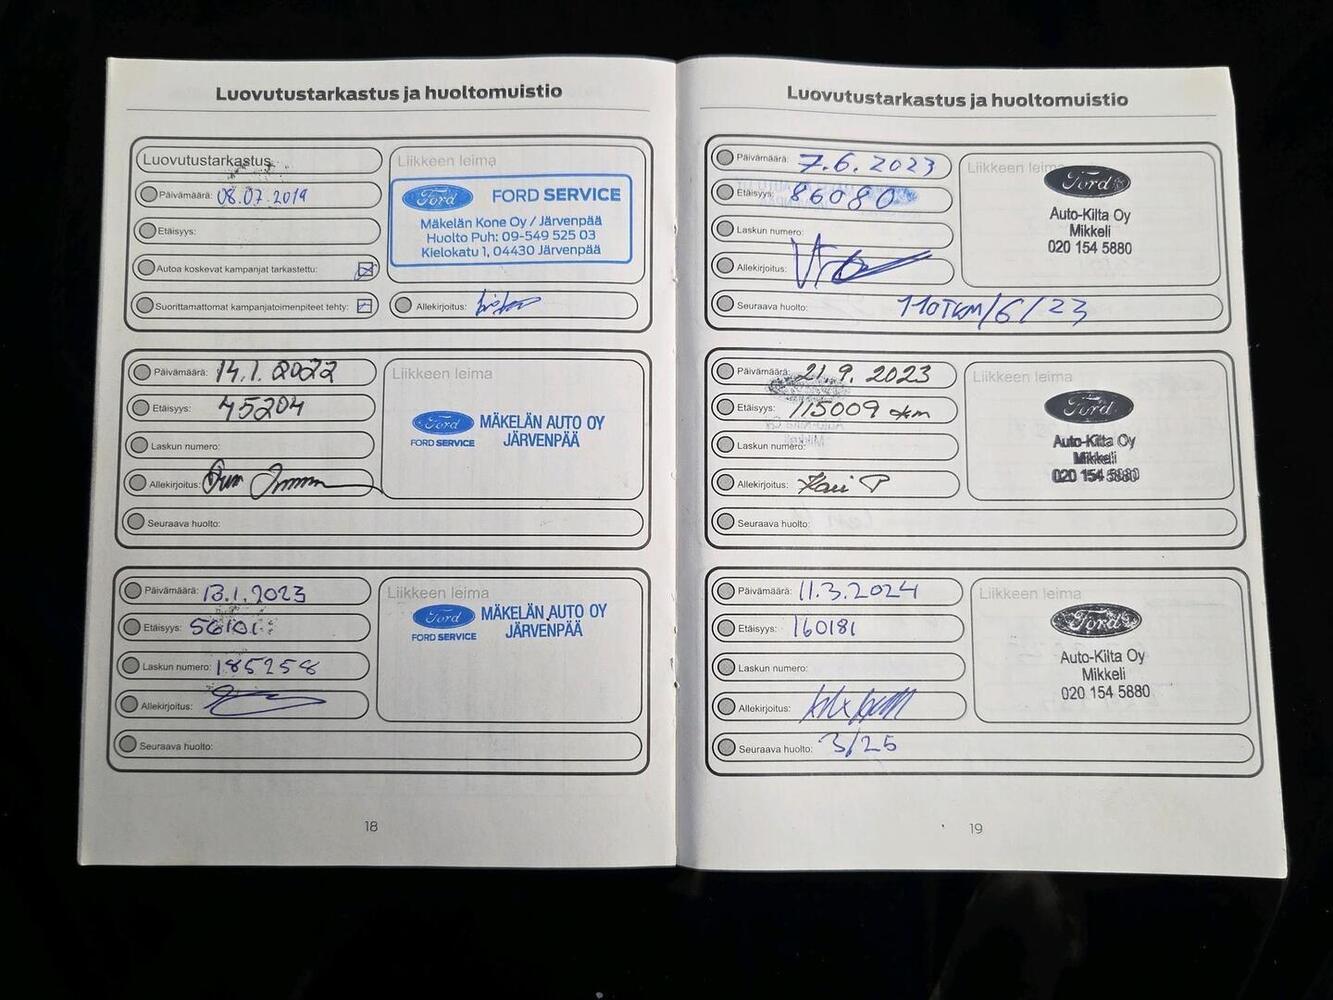 Luovutustarkastus ja huoltomuistio
Luovutustarkastus
Päivämäärä: 08.07.2019
Etäisyys:
Autoa koskevat kampanjat tarkastettu:
Suorittamattomat kampanjatoimenpiteet tehty:
Liikkeen leima
Ford FORD SERVICE
Mäkelän Kone Oy / Järvenpää
Huolto Puh: 09-549 525 03
Kielokatu 1, 04430 Järvenpää
Allekirjoitus:
Päivämäärä: 14.1.2022
Etäisyys: 45204
Laskun numero:
Allekirjoitus:
Seuraava huolto:
Liikkeen leima
Ford MÄKELÄN AUTO OY
FORD SERVICE JÄRVENPÄÄ
Päivämäärä: 13.1.2023
Etäisyys: 56101
Laskun numero: 185258
Allekirjoitus:
Seuraava huolto:
Liikkeen leima
Ford MÄKELÄN AUTO OY
FORD SERVICE JÄRVENPÄÄ
18
Luovutustarkastus ja huoltomuistio
Päivämäärä: 7.6.2023
Etäisyys: 86080
Laskun numero:
Allekirjoitus:
Seuraava huolto: 110TKM/6/23
Liikkeen leima
Ford
Auto-Kilta Oy
Mikkeli
020 154 5880
Päivämäärä: 21.9.2023
Etäisyys: 115009 km
Laskun numero:
Allekirjoitus: Kari P
Seuraava huolto:
Liikkeen leima
Ford
Auto-Kilta Oy
Mikkeli
020 154 5880
Päivämäärä: 11.3.2024
Etäisyys: 160181
Laskun numero:
Allekirjoitus:
Seuraava huolto: 3/25
Liikkeen leima
Ford
Auto-Kilta Oy
Mikkeli
020 154 5880
19